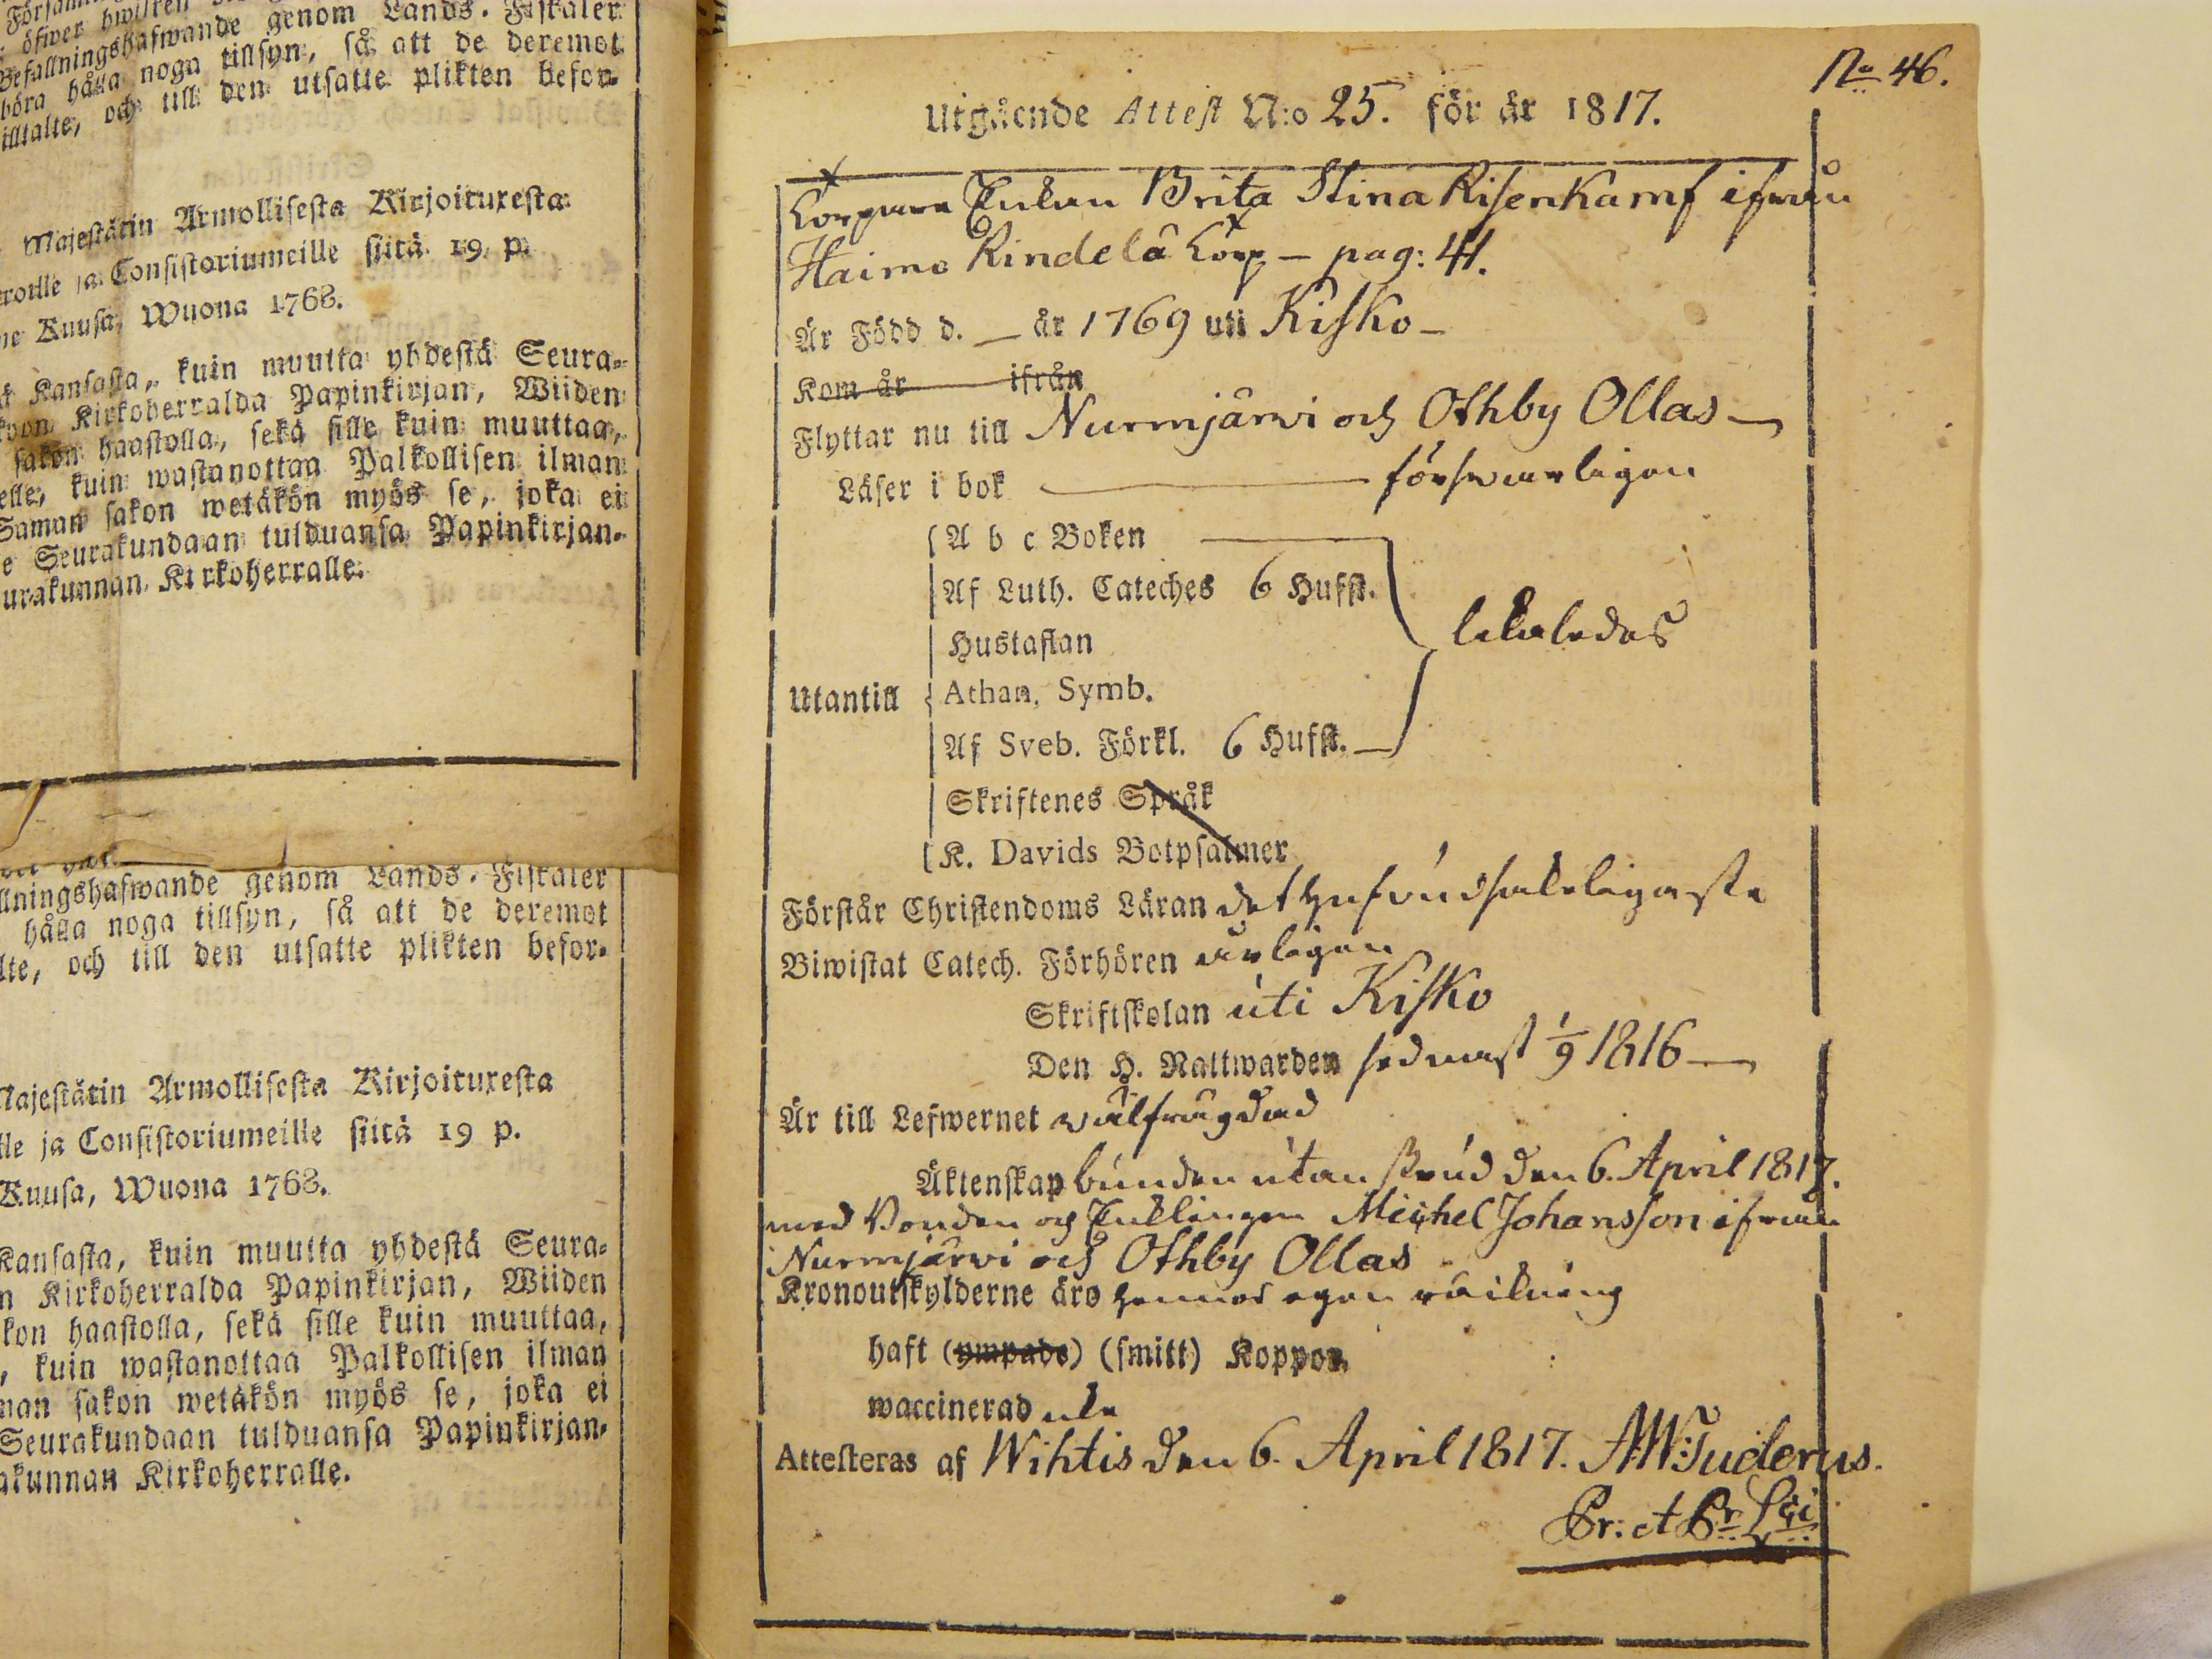 öfwer hwilken
Befallningshafwande genom Lands-Fiskaler
böra hålla noga tillsyn, så att de deremot
tilltalte, och till den utsatte plikten befor-
Majestätin Armollisesta Kirjoituxesta
ja Consistoriumeille siitä 19 p.
Kuusa, Wuona 1768.
Kansasta, kuin muutta yhdestä Seura-
Kirkoherralda Papinkirjan, Wiiden
sakon haastolla, sekä sille kuin muuttaa,
kuin wastanottaa Palkollisen ilman
Saman sakon wetäkön myös se, joka ei
Seurakundaan tulduansa Papinkirjan-
Seurakunnan Kirkoherralle.
llningshafwande genom Lands-Fiskaler
hålla noga tillsyn, så att de deremot
lte, och till den utsatte plikten befor-
Majestätin Armollisesta Kirjoituxesta
lle ja Consistoriumeille siitä 19 p.
Kuusa, Wuona 1768.
Kansasta, kuin muutta yhdestä Seura-
n Kirkoherralda Papinkirjan, Wiiden
kon haastolla, sekä sille kuin muuttaa,
, kuin wastanottaa Palkollisen ilman
man sakon wetäkön myös se, joka ei
Seurakundaan tulduansa Papinkirjan-
akunnan Kirkoherralle.
No 46.
Utgående Attest N:o 25. för år 1817.
Enkan Brita Stina Risenkamf ifrån
Haimo Rindelä Torp - pag: 41.
Är Född d. _ år 1769 uti Kisko -
Kom år ifrån
Flyttar nu till Nurmjärwi och Othby Ollas -
Läser i bok förswarligen
A b c Boken
Af Luth. Cateches 6 Hufst.
Hustaflan
likaledes
Utantill
Athan. Symb.
Af Sveb. Förkl. 6 Hufst.
Skriftenes Språk
K. Davids Botpsalmer
Förstår Christendoms Läran det hufwudsakeligaste
Biwistat Catech. Förhören årligen
Skriftskolan uti Kisko
Den H. Nattwarden sednast 1/9 1816 -
Är till Lefwernet välfrägdad
Äktenskap bunden utan brud den 6. April 1817.
med Bonden och Enklingen Michel Johansson ifrån
Nurmjärwi och Othby Ollas
Kronoutskylderne äro hennes egen räkning
haft (ympade) (smitt) Koppor
waccinerad icke
Attesteras af Wihtis den 6. April 1817. AW:Tuderus.
Pr: et